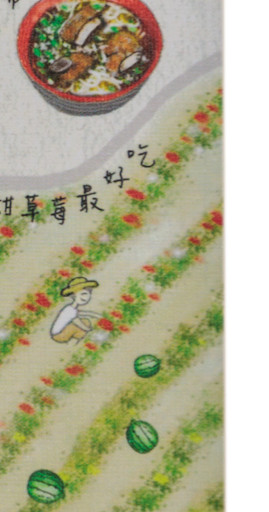 甜草莓最好吃